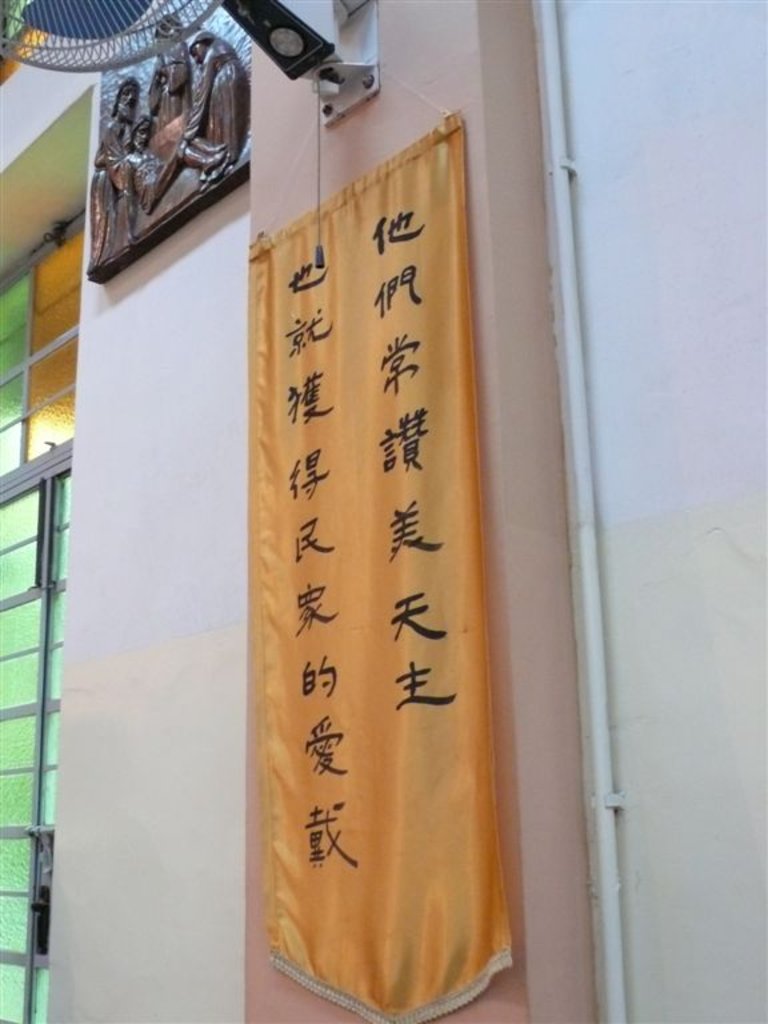 他們常讚美天主
也就獲得民眾的愛戴